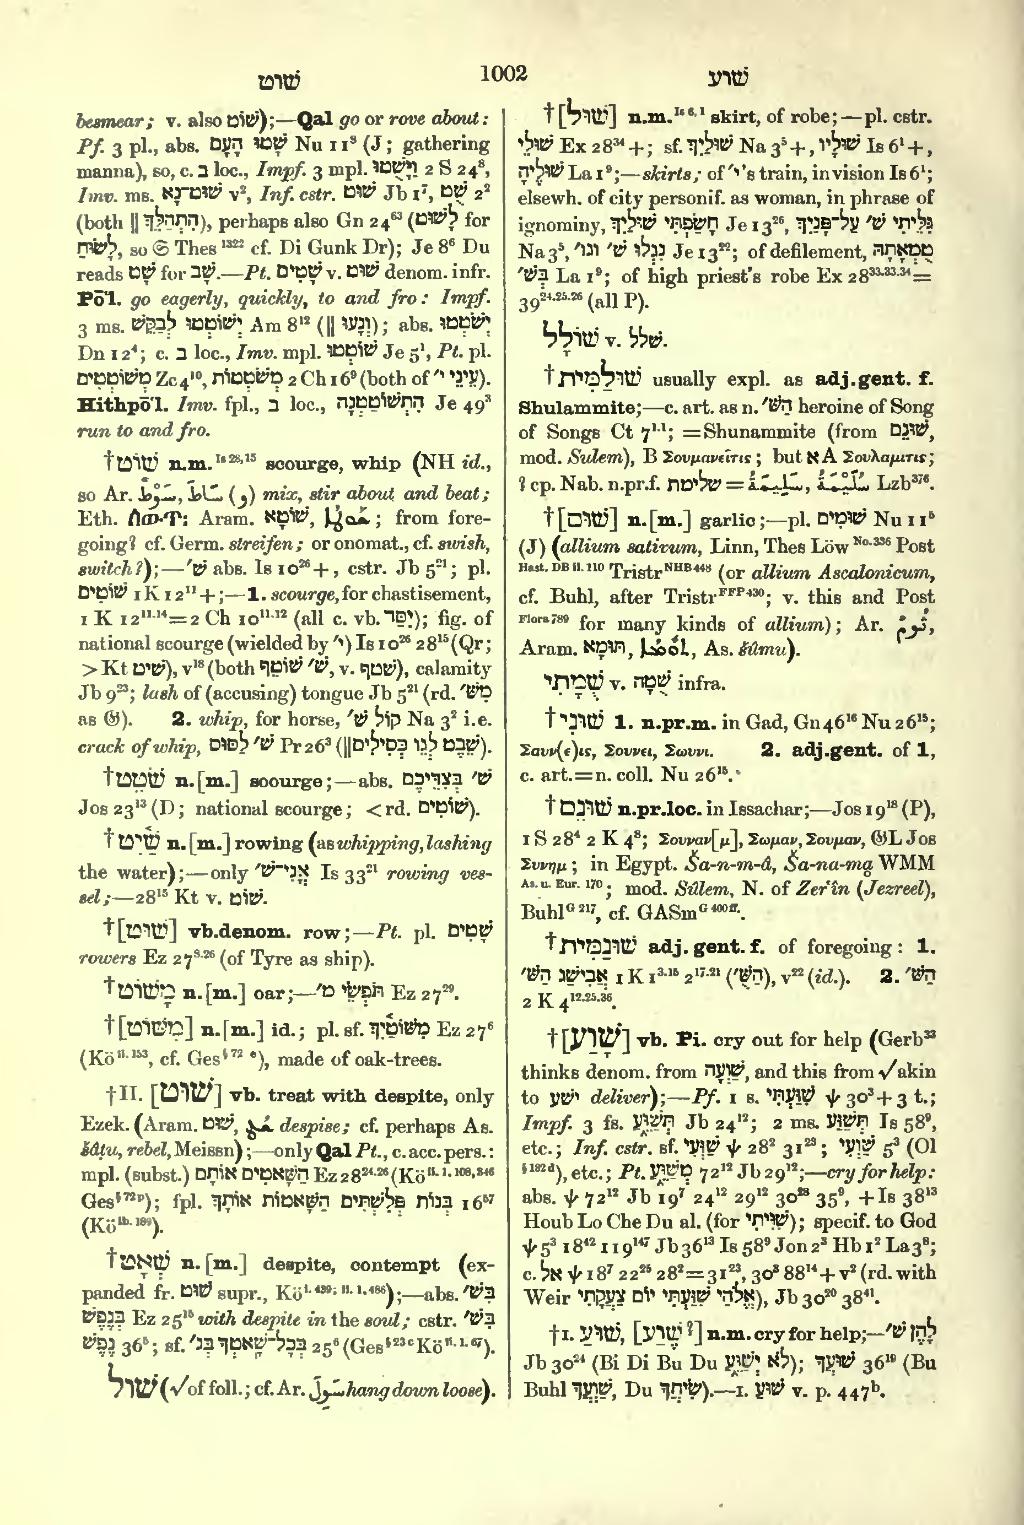 שׁוט
1002
שׁוע
besmear; v. also שׁוֹט);—Qal go or rove about:
Pf. 3 pl., abs. שָׁטוּ הָעָם Nu 11⁸ (J; gathering
manna), so, c. ב loc., Impf. 3 mpl. וַיָּשֻׁטוּ 2 S 24⁸,
Imv. ms. שׁוּט־נָא v², Inf. cstr. שׁוּט Jb 1⁷, שֻׁט 2²
(both ‖ הִתְהַלֵּךְ), perhaps also Gn 24⁶³ (לָשׁוּט for
לָשׂוּחַ, so Thes ¹³²² cf. Di Gunk Dr); Je 8⁶ Du
reads שָׁט for שָׁב.—Pt. שָׁטִים v. שׁוּט denom. infr.
Pō'l. go eagerly, quickly, to and fro: Impf.
3 ms. יְשׁוֹטְטוּ לְבַקֵּשׁ Am 8¹² (‖ וְנָעוּ); abs. יְשֹׁטְטוּ
Dn 12⁴; c. ב loc., Imv. mpl. שׁוֹטְטוּ Je 5¹, Pt. pl.
מְשׁוֹטְטִים Zc 4¹⁰, מְשֹׁטְטוֹת 2 Ch 16⁹ (both of עֵינֵי י׳).
Hithpō'l. Imv. fpl., ב loc., הִתְשׁוֹטַטְנָה Je 49³
run to and fro.
†שׁוֹט n.m. Is 28,15 scourge, whip (NH id.,
so Ar. سَوْط, سَاطَ (و) mix, stir about and beat;
Eth. Aram. שׁוֹטָא, ; from fore-
going? cf. Germ. streifen; or onomat., cf. swish,
switch?);—שׁ׳ abs. Is 10²⁶ +, cstr. Jb 5²¹; pl.
שׁוֹטִים 1 K 12¹¹ +;—1. scourge, for chastisement,
1 K 12¹¹·¹⁴ = 2 Ch 10¹¹·¹² (all c. vb. יִסַּר); fig. of
national scourge (wielded by י׳) Is 10²⁶ 28¹⁵ (Qr;
> Kt שׁיט), v¹⁸ (both שׁ׳ שׁוֹטֵף, v. שׁטף), calamity
Jb 9²³; lash of (accusing) tongue Jb 5²¹ (rd. מִשּׁ׳
as 𝔊). 2. whip, for horse, קוֹל שׁ׳ Na 3² i.e.
crack of whip, שׁ׳ לַסּוּס Pr 26³ (‖שֵׁבֶט לְגֵו כְּסִילִים).
†שֹׁטֵט n.[m.] scourge;—abs. שׁ׳ בְּצִדֵּיכֶם
Jos 23¹³ (D; national scourge; < rd. שׁוֹטִים).
†שַׁיִט n.[m.] rowing (as whipping, lashing
the water);—only אֳנִי־שׁ׳ Is 33²¹ rowing ves-
sel;—28¹⁵ Kt v. שׁוֹט.
†[שׁוּט] vb.denom. row;—Pt. pl. שָׁטִים
rowers Ez 27⁸·²⁶ (of Tyre as ship).
†מָשׁוֹט n.[m.] oar;—תֹּפְשֵׂי מ׳ Ez 27²⁹.
†[מִשּׁוֹט] n.[m.] id.; pl. sf. מִשּׁוֹטָיִךְ Ez 27⁶
(Kö ii. 153, cf. Ges § 72 e), made of oak-trees.
†II. [שׁוּט] vb. treat with despite, only
Ezek. (Aram. שׁוּט, despise; cf. perhaps As.
šâṭu, rebel, Meissn);—only Qal Pt., c. acc. pers.:
mpl. (subst.) הַשָּׁאטִים אוֹתָם Ez 28²⁴·²⁶ (Kö ii. 1. 108, 346
Ges § 72 p); fpl. בְּנוֹת פְּלִשְׁתִּים הַשָּׁאטוֹת אוֹתָךְ 16⁵⁷
(Kö ib. 189).
†שְׁאָט n.[m.] despite, contempt (ex-
panded fr. שׁוּט supr., Kö i. 439; ii. 1. 486);—abs. בִּשׁ׳
בְּנֶפֶשׁ Ez 25¹⁵ with despite in the soul; cstr. בִּשׁ׳
נֶפֶשׁ 36⁵; sf. בְּכָל־שָׁאטְךָ בְּנ׳ 25⁶ (Ges § 23 c Kö ii. 1. 67).
שׁול (√ of foll.; cf. Ar. سَوِلَ hang down loose).
†[שׁוּל] n.m. Is 6,1 skirt, of robe;—pl. cstr.
שׁוּלֵי Ex 28³⁴ +; sf. שׁוּלַיִךְ Na 3⁵ +, שׁוּלָיו Is 6¹ +,
שׁוּלֶיהָ La 1⁹;—skirts; of י׳'s train, in vision Is 6¹;
elsewh. of city personif. as woman, in phrase of
ignominy, חָשַׂפְתִּי שׁוּלַיִךְ Je 13²⁶, גִּלֵּיתִי שׁ׳ עַל־פָּנָיִךְ
Na 3⁵, נִגְלוּ שׁ׳ וגו׳ Je 13²²; of defilement, טֻמְאָתָהּ
בְּשׁ׳ La 1⁹; of high priest's robe Ex 28³³·³³·³⁴ =
39²⁴·²⁵·²⁶ (all P).
שׁוֹלָל v. שׁלל.
†שׁוּלַמִּית usually expl. as adj.gent. f.
Shulammite;—c. art. as n. הַשּׁ׳ heroine of Song
of Songs Ct 7¹·¹; = Shunammite (from שׁוּנֵם,
mod. Sulem), B Σουμανεῖτις; but א A Σουλαμιτις;
? cp. Nab. n.pr.f. שלימת = سُلَيْمَة, سَلَّامَة Lzb³⁷⁶.
†[שׁוּם] n.[m.] garlic;—pl. שׁוּמִים Nu 11⁵
(J) (allium sativum, Linn, Thes Löw No. 336 Post
Hast. DB ii. 110 Tristr NHB 448 (or allium Ascalonicum,
cf. Buhl, after Tristr FFP 430; v. this and Post
Flora 789 for many kinds of allium); Ar. ثُومٌ,
Aram. תּוּמָא, , As. šûmu).
שֻׁמָתִי v. שֻׁמָה infra.
†שׁוּנִי 1. n.pr.m. in Gad, Gn 46¹⁶ Nu 26¹⁵;
Σαυν(ε)ις, Σουνει, Σωυνι. 2. adj.gent. of 1,
c. art. = n. coll. Nu 26¹⁵.
†שׁוּנֵם n.pr.loc. in Issachar;—Jos 19¹⁸ (P),
1 S 28⁴ 2 K 4⁸; Σουναν[μ], Σωμαν, Σουμαν, 𝔊L Jos
Συνημ; in Egypt. Ša-n-m-â, Ša-na-mạ WMM
As. u. Eur. 170; mod. Sûlem, N. of Zer'în (Jezreel),
Buhl G 217, cf. GASm G 400 ff.
†שׁוּנַמִּית adj. gent. f. of foregoing: 1.
אֲבִישַׁג הַשּׁ׳ 1 K 1³·¹⁵ 2¹⁷·²¹ (הַשֻּׁ׳), v²² (id.). 2. הַשּׁ׳
2 K 4¹²·²⁵·³⁶.
†[שָׁוַע] vb. Pi. cry out for help (Gerb³³
thinks denom. from שַׁוְעָה, and this from √ akin
to ישׁע deliver);—Pf. 1 s. שִׁוַּעְתִּי ψ 30³ + 3 t.;
Impf. 3 fs. תְּשַׁוֵּעַ Jb 24¹²; 2 ms. תְּשַׁוַּע Is 58⁹,
etc.; Inf. cstr. sf. שַׁוְּעִי ψ 28² 31²³; שַׁוְעִי 5³ (Ol
§ 182 d), etc.; Pt. מְשַׁוֵּעַ 72¹² Jb 29¹²;—cry for help:
abs. ψ 72¹² Jb 19⁷ 24¹² 29¹² 30²⁸ 35⁹, + Is 38¹³
Houb Lo Che Du al. (for שִׁוִּיתִי); specif. to God
ψ 5³ 18⁴² 119¹⁴⁷ Jb 36¹³ Is 58⁹ Jon 2³ Hb 1² La 3⁸;
c. אל ψ 18⁷ 22²⁵ 28² = 31²³, 30³ 88¹⁴ + v² (rd. with
Weir אֱלֹהַי שִׁוַּעְתִּי יוֹם צָעַקְתִּי), Jb 30²⁰ 38⁴¹.
†I. שׁוּעַ, [שֶׁוַע?] n.m. cry for help;—לָהֶן שׁ׳
Jb 30²⁴ (Bi Di Bu Du לֹא יְשַׁוֵּעַ); שׁוּעֲךָ 36¹⁹ (Bu
Buhl שַׁוְעֲךָ, Du שִׂיחֲךָ).—I. שׁוּעַ v. p. 447ᵇ.